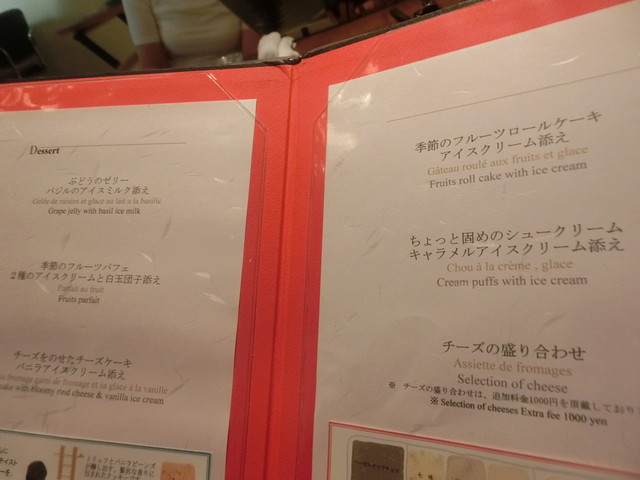 Dessert
ぶどうのゼリー
バジルのアイスミルク添え
Gelée de raisins et glace au lait a la basilic
Grape jelly with basil ice milk
季節のフルーツパフェ
２種のアイスクリームと白玉団子添え
Parfait au fruit
Fruits parfait
チーズをのせたチーズケーキ
バニラアイスクリーム添え
fromage garni de fromage et sa glace à la vanille
cake with bloomy rind cheese & vanilla ice cream
季節のフルーツロールケーキ
アイスクリーム添え
Gâteau roulé aux fruits et glace
Fruits roll cake with ice cream
ちょっと固めのシュークリーム
キャラメルアイスクリーム添え
Chou à la crème , glace
Cream puffs with ice cream
チーズの盛り合わせ
Assiette de fromages
Selection of cheese
※ チーズの盛り合わせは、追加料金1000円を頂戴しており
※ Selection of cheeses Extra fee 1000 yen